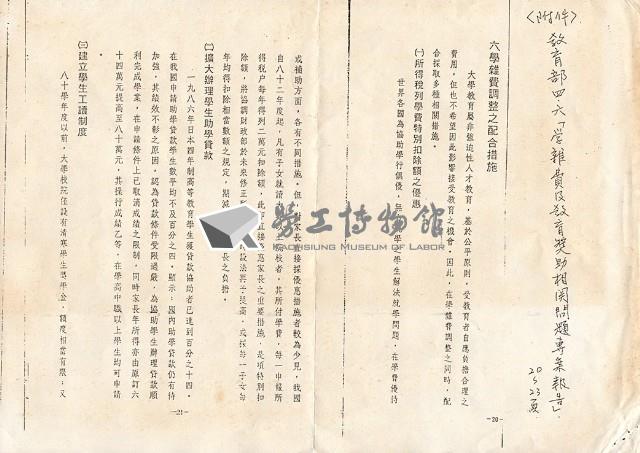 〈附件〉
教育部四六丁學雜費及教育獎助相關問題專案報告
20～23頁
六學雜費調整之配合措施
大學教育屬非強迫性人才教育，基於公平原則，受教育者自應負擔合理之
費用，但也不希望因此影響接受教育之機會。因此，在學雜費調整之同時，配
合採取多種相關措施。
㈠所得稅列學費特別扣除額之優惠
世界各國為協助學行俱優，無
學生解決就學問題，在學費優待
－20－
或補助方面，各有不同措施。但，對家長直接採優惠措施者較為少見，我國
自八十二年度起，凡有子女就讀
校者，其所付學費，每一申報所
得稅戶每年得列二萬元扣除額，此
直接
惠家長之重要措施，是項特別扣
除額，將協調財政部於未來修正
設法再予提高，或採每一子女每
年均得扣除相當數額之規定，期減
長之負擔。
㈡擴大辦理學生助學貸款
一九八六年日本四年制高等教育學生獲貸款協助者已達到百分之十四。
在我國申請助學貸款學生數平均不及百分之四。顯示：國內助學貸款仍有待
加強，其績效不彰之原因，認為貸款條件受限過嚴，為協助學生辦理貸款順
利完成學業，在申請條件上已取消成績之限制，同時家長年所得亦由原訂六
十四萬元提高至八十萬元，其操行成績乙等，在學高中職以上學生均可申請
－21－
㈢建立學生工讀制度
八十學年度以前，大學校院僅設有清寒學生獎學金，額度相當有限；又
勞工博物館
KAOHSIUNG MUSEUM OF LABOR